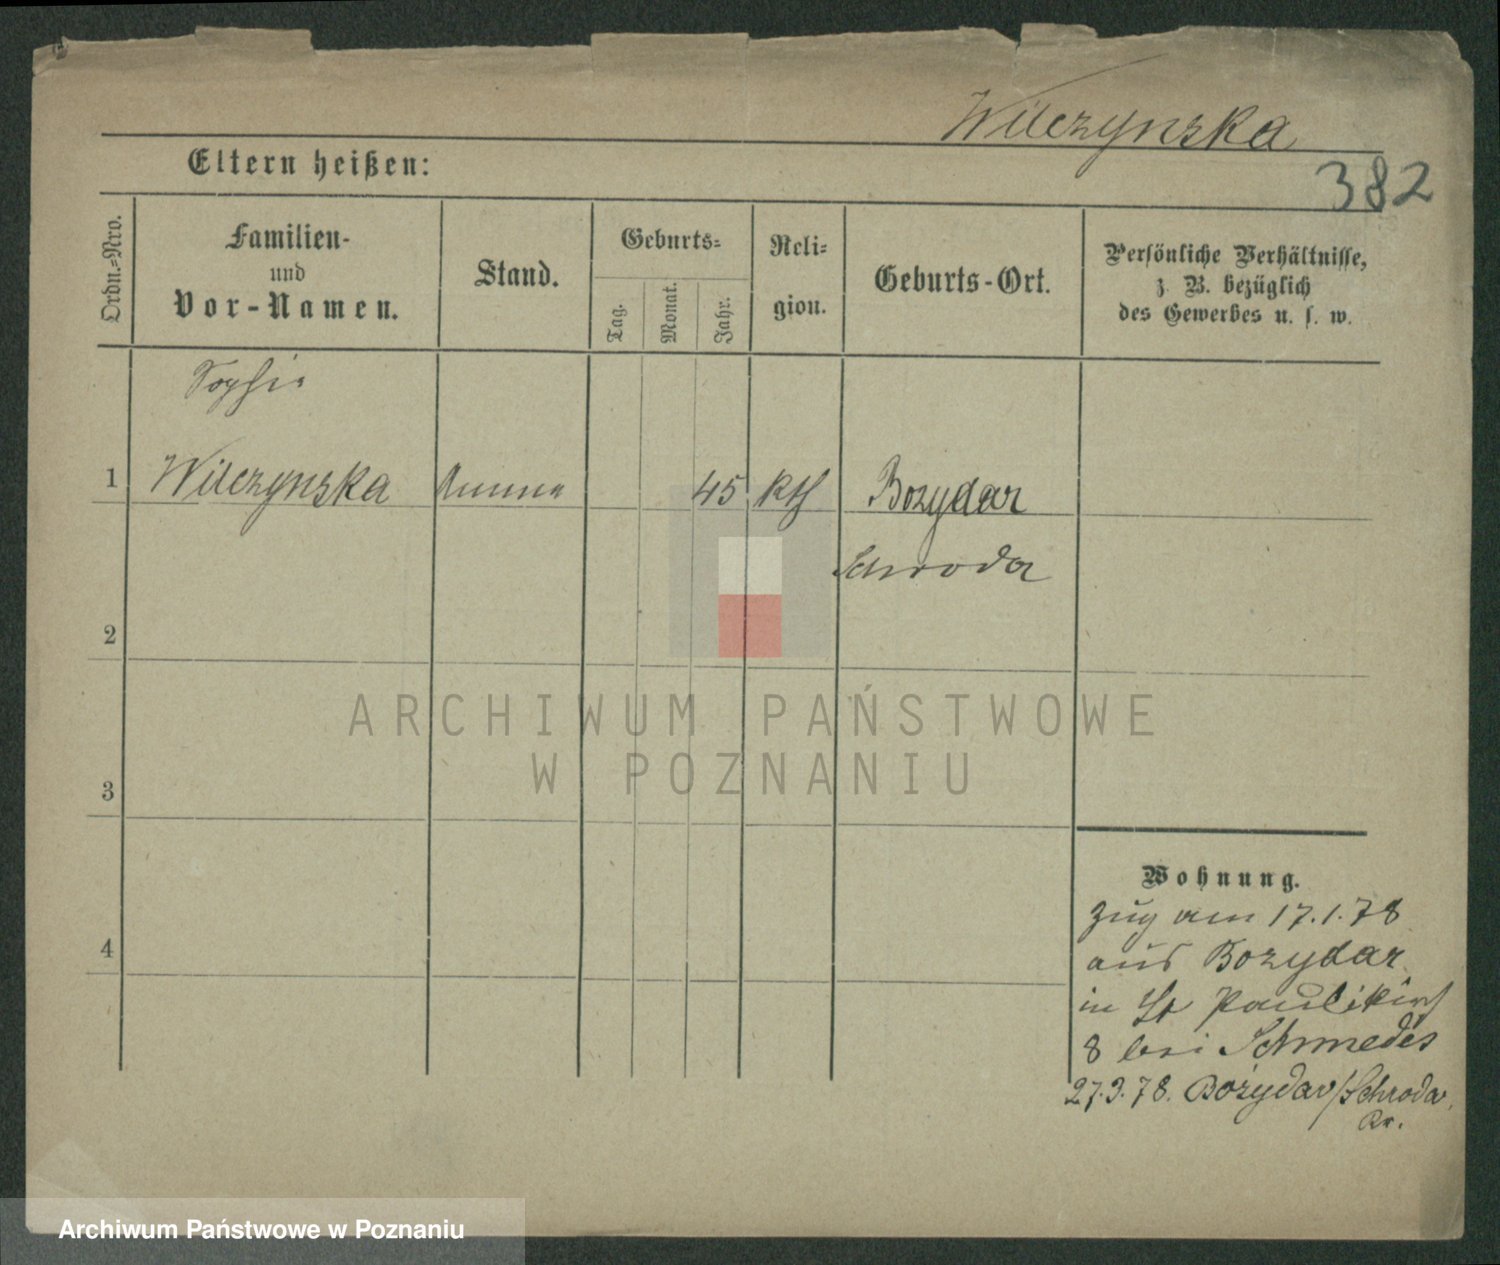 Wilczynska
382
Eltern heißen:
Ordn.=Nro.
Familien-
und
Vor-Namen.
Stand.
Geburts=
Tag.
Monat.
Jahr.
Reli=
gion.
Geburts-Ort.
Persönliche Verhältnisse,
z. B. bezüglich
des Gewerbes u. s. w.
Sophie
1 Wilczynska Amme 45 kth Bozydar
Schroda
2
3
4
ARCHIWUM PAŃSTWOWE
W POZNANIU
Wohnung.
Zug am 17.1.78
aus Bozydar
in St Paulikirch
8 bei Schmedes
27.3.78. Bożydar/Schroda.
Kr.
Archiwum Państwowe w Poznaniu